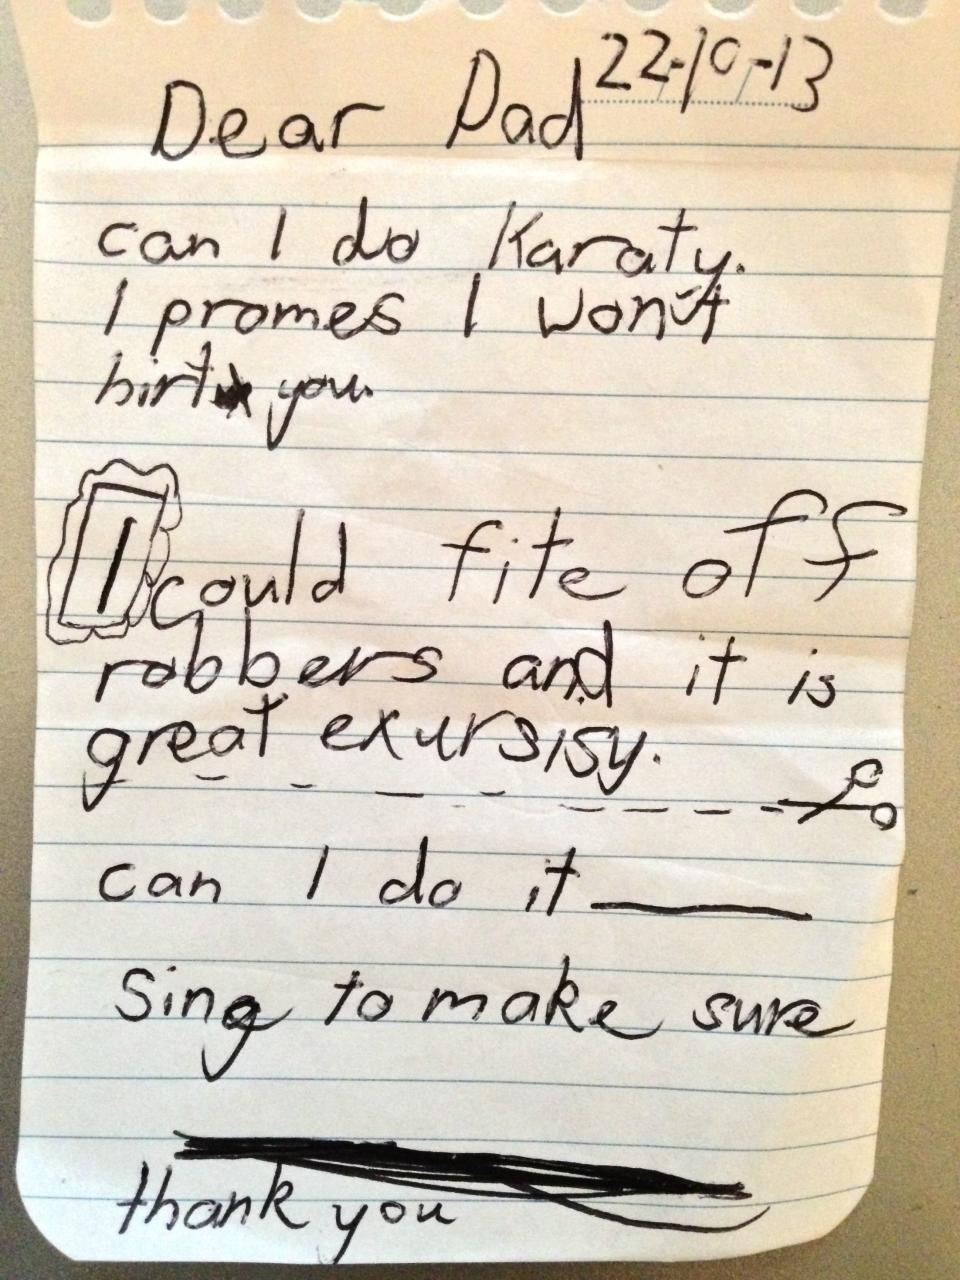 22-10-13
Dear Dad
can I do Karaty.
I promes I won't
hirt you.
I could fite off
robbers and it is
great exursisy.
can I do it
Sing to make sure
thank you